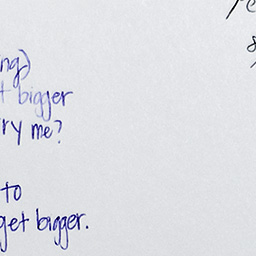 ng)
bigger
ry me?
to
get bigger.